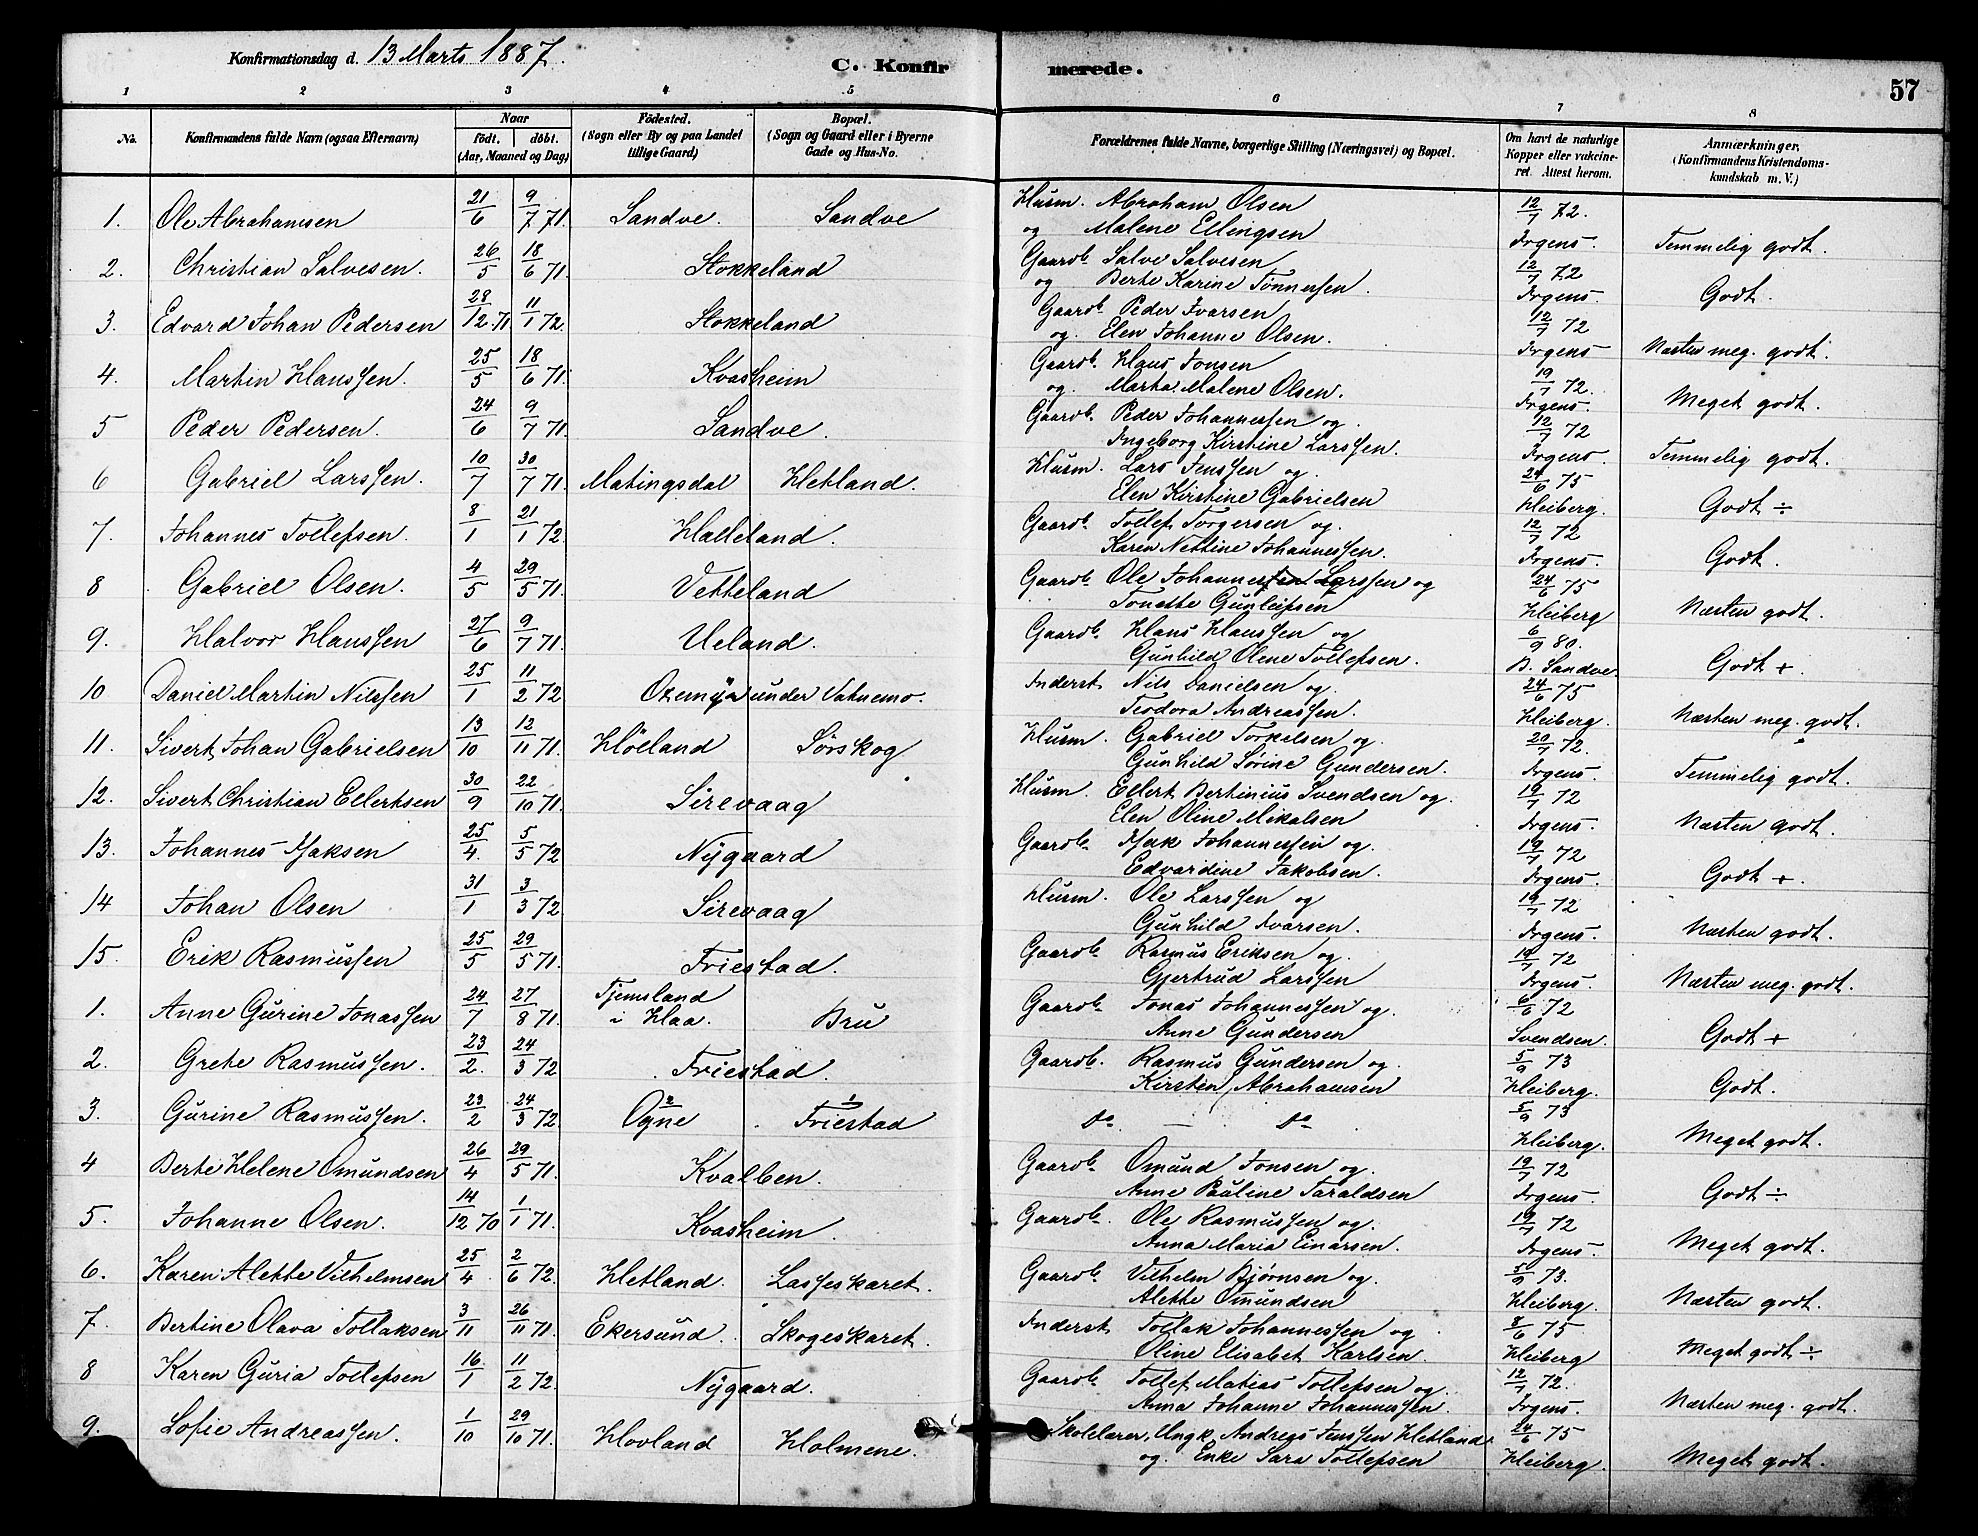 Konfirmationsdag d. 13 Marts 1887.
C. Konfirmerede.
57
1 2 3 4 5 6 7 8
No. Konfirmandens fulde Navn (ogsaa Efternavn) Naar födt. döbt. (Aar, Maaned og Dag) Födested. (Sogn eller By og paa Landet tillige Gaard) Bopæl. (Sogn og Gaard eller i Byerne Gade og Hus-No. Forældrenes fulde Navne, borgerlige Stilling (Næringsvei) og Bopæl. Om havt de naturlige Kopper eller vakcineret. Attest herom. Anmærkninger, (Konfirmandens Kristendomskundskab m. V.)
1. Ole Abrahamsen 21/6 9/7 71. Sandve. Sandve Husm. Abraham Olsen 12/7 72.
og Malene Ellengsen Irgens. Temmelig godt.
2. Christian Salvesen. 26/5 18/6 71. Stokkeland Gaardb. Salve Salvesen 12/7 72
og Berte Karine Tønnessen. Irgens. Godt.
3. Edvard Johan Pedersen 28/12 71 11/1 72. Stokkeland Gaardb. Peder Ivarsen 12/7 72
og. Elen Johanne Olsen. Irgens Næsten meg. godt.
4. Martin Hanssen. 25/5 18/6 71. Kvasheim Gaardb. Hans Jonsen 19/7 72.
og. Marta Malene Olsen. Irgens. Meget godt.
5 Peder Pedersen. 24/6 9/7 71. Sandve. Gaardb. Peder Johannessen og. 12/7 72
Ingeborg Kirstine Larssen. Irgens. Temmelig godt.
6 Gabriel Larssen. 10/7 30/7 71. Matingsdal Hetland. Husm. Lars Jenssen og. 24/6 75
Elen Kirstine Gabrielsen Heiberg. Godt ÷
7. Johannes Tollefsen. 8/1 21/1 72. Hælleland. Gaardb. Tollef Torgersen og. 12/7 72
Karen Nettine Johannessen. Irgens. Godt.
8 Gabriel Olsen. 4/5 29/5 71. Vetteland Gaardb. Ole Johannessen Larssen og 24/6 75
Tonette Gunleifsen Heiberg Næsten godt.
9. Halvor Hanssen 27/6 9/7 71. Ueland. Gaardb. Hans Hanssen og 6/9 80.
Gunhild Olene Tollefsen. B. Sandve. Godt +
10 Daniel Martin Nilssen 25/1 11/2 72. under Vatnemo. Inderst Nils Danielsen og. 24/6 75
Teodora Andreassen. Heiberg. Næsten meg. godt.
11. Sivert Johan Gabrielsen 13/10 12/11 71. Höeland Sørskog Husm. Gabriel Torkelsen og. 20/7 72.
Gunhild Sørine Gundersen. Irgens. Temmelig godt.
12. Sivert Christian Ellertsen 30/9 22/10 71. Sirevaag Husm. Ellert Bertinius Svendsen og. 19/7 72
Elen Oline Mikalsen Irgens. Næsten godt.
13. Johannes Isaksen 25/4. 5/5 72 Nygaard Gaardb. Isak Johannessen og. 19/7 72
Edvardine Jakobsen. Irgens. Godt +.
14 Johan Olsen 31/1 3/3 72 Sirevaag Husm. Ole Larssen og 19/7 72
Gunhild Ivarsen. Irgens. Næsten godt.
15. Erik Rasmussen 25/5 29/5 71. Friestad. Gaardb. Rasmus Eriksen og. 19/7 72
Gjertrud Larssen Irgens. Næsten meg. godt.
1. Anne Gurine Jonassen 24/7 27/8 71. Tjemsland i Haa. Bru Gaardb. Jonas Johannessen og. 6/6 72
Anne Gundersen Svendsen. Godt +
2. Grete Rasmussen. 23/2. 24/3 72 Friestad. Gaardb. Rasmus Gundersen og. 5/9 73
Kirsten Abrahamsen Heiberg. Godt.
3. Gurine Rasmussen. 23/2 24/3 72. Ogne 2 Friestad 1 do — do 5/9 73
Heiberg. Meget godt.
4 Berte Helene Omundsen 26/4 29/5 71. Kvalben. Gaardb. Omund Jonsen og. 19/7 72
Anne Pauline Taraldsen Irgens. Godt ÷
5. Johanne Olsen. 14/12 70 1/1 71. Kvasheim. Gaardb. Ole Rasmussen og. 19/7 72
Anna Maria Einarsen. Irgens. Meget godt.
6. Karen Alette Vilhelmsen 25/4 2/6 72. Hetland. Lasseskaret. Gaardb. Vilhelm Bjørnsen og. 5/9 73.
Alette Omundsen Heiberg. Næsten godt.
7. Bertine Olava Tollaksen 3/11 26/11 71. Ekersund. Skogeskaret. Inderst Tollak Johannessen og 8/6 75
Oline Elisabet Karlsen. Heiberg Meget godt ÷
8 Karen Guria Tollefsen 16/1 11/2 72. Nygaard. Gaardb. Tollef Matias Tollefsen og. 12/7 72.
Anna Johanne Johannessen. Irgens. Næsten meg. godt.
9. Sofie Andreassen. 1/10 29/10 71. Hovland Holmene. Skolelærer, Ungk. Andreas Jenssen Hetland 24/6 75
og. Enke Sara Tollefsen Heiberg. Meget godt.